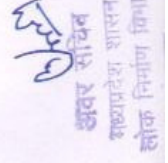 अवर सचिव
मध्यप्रदेश शासन
लोक निर्माण विभा